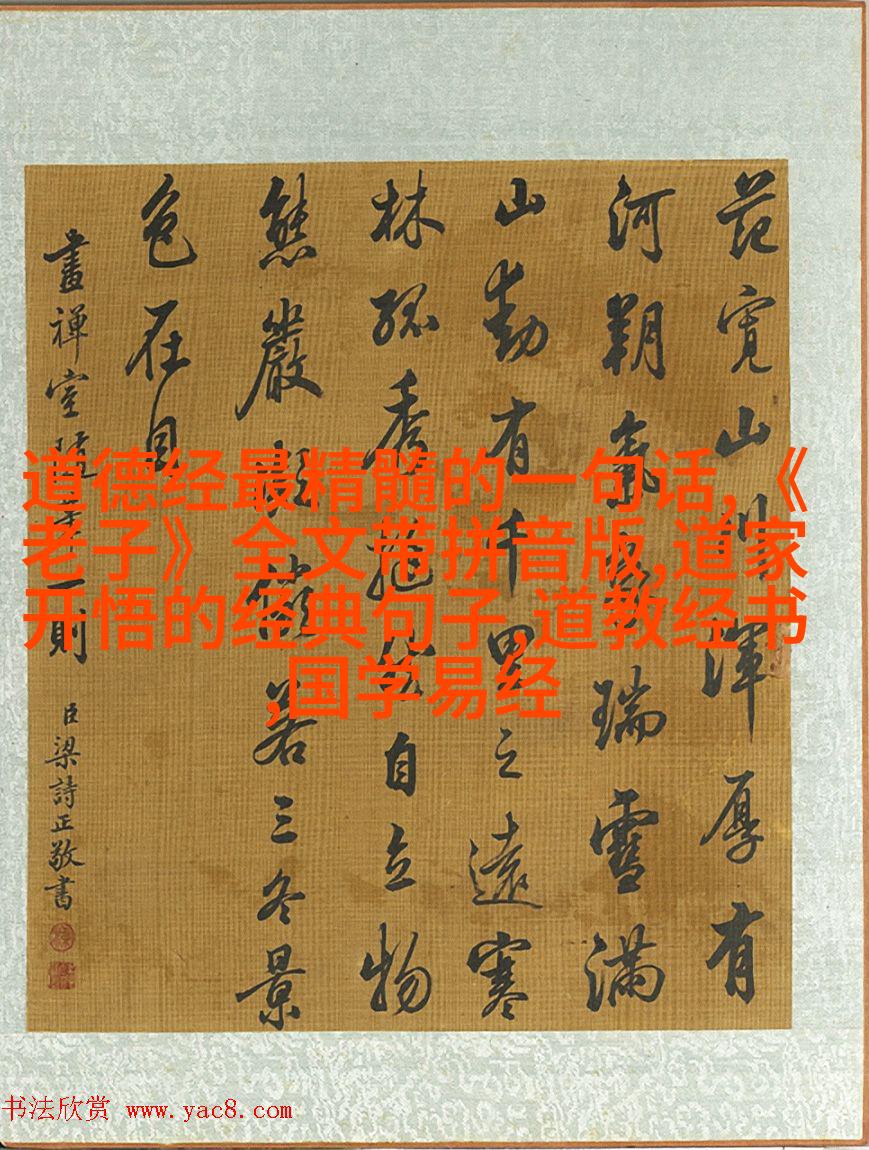 范寬山川渾厚有
河朔氣象瑞雪滿
山動有千里之遠寒
林孤秀挺然自立物
態嚴凝儼若三冬景
色在目
畫禪室隨筆一則
臣梁詩正敬書
道德经最精髓的一句话,《
老子》全文带拼音版,道家
开悟的经典句子,道教经书
,国学易经
书法欣赏 www.yac8.com